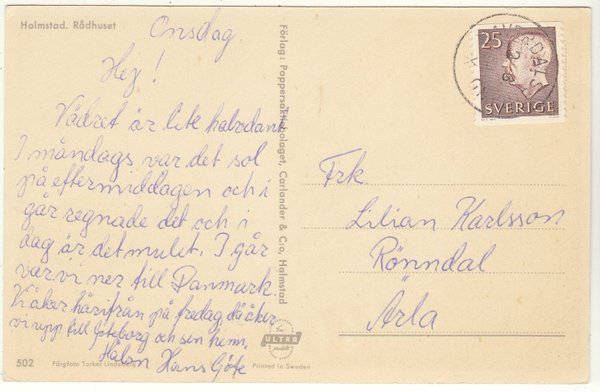 Halmstad. Rådhuset
Onsdag.
Hej!
Vädret är lite halvdant
I måndags var det sol
på eftermiddagen och i
går regnade det och i
dag är det mulet. I går
var vi ner till Danmark.
Vi åker härifrån på fredag då åker
vi upp till Göteborg och sen hem.
Hälsn Hans Göte
502
Färgfoto Torkel Lindeberg
Förlag: Pappersaktiebolaget, Carlander & Co, Halmstad
ULTRA
Printed in Sweden
25
SVERIGE
Frk.
Lilian Karlsson
Rönndal
Ärla